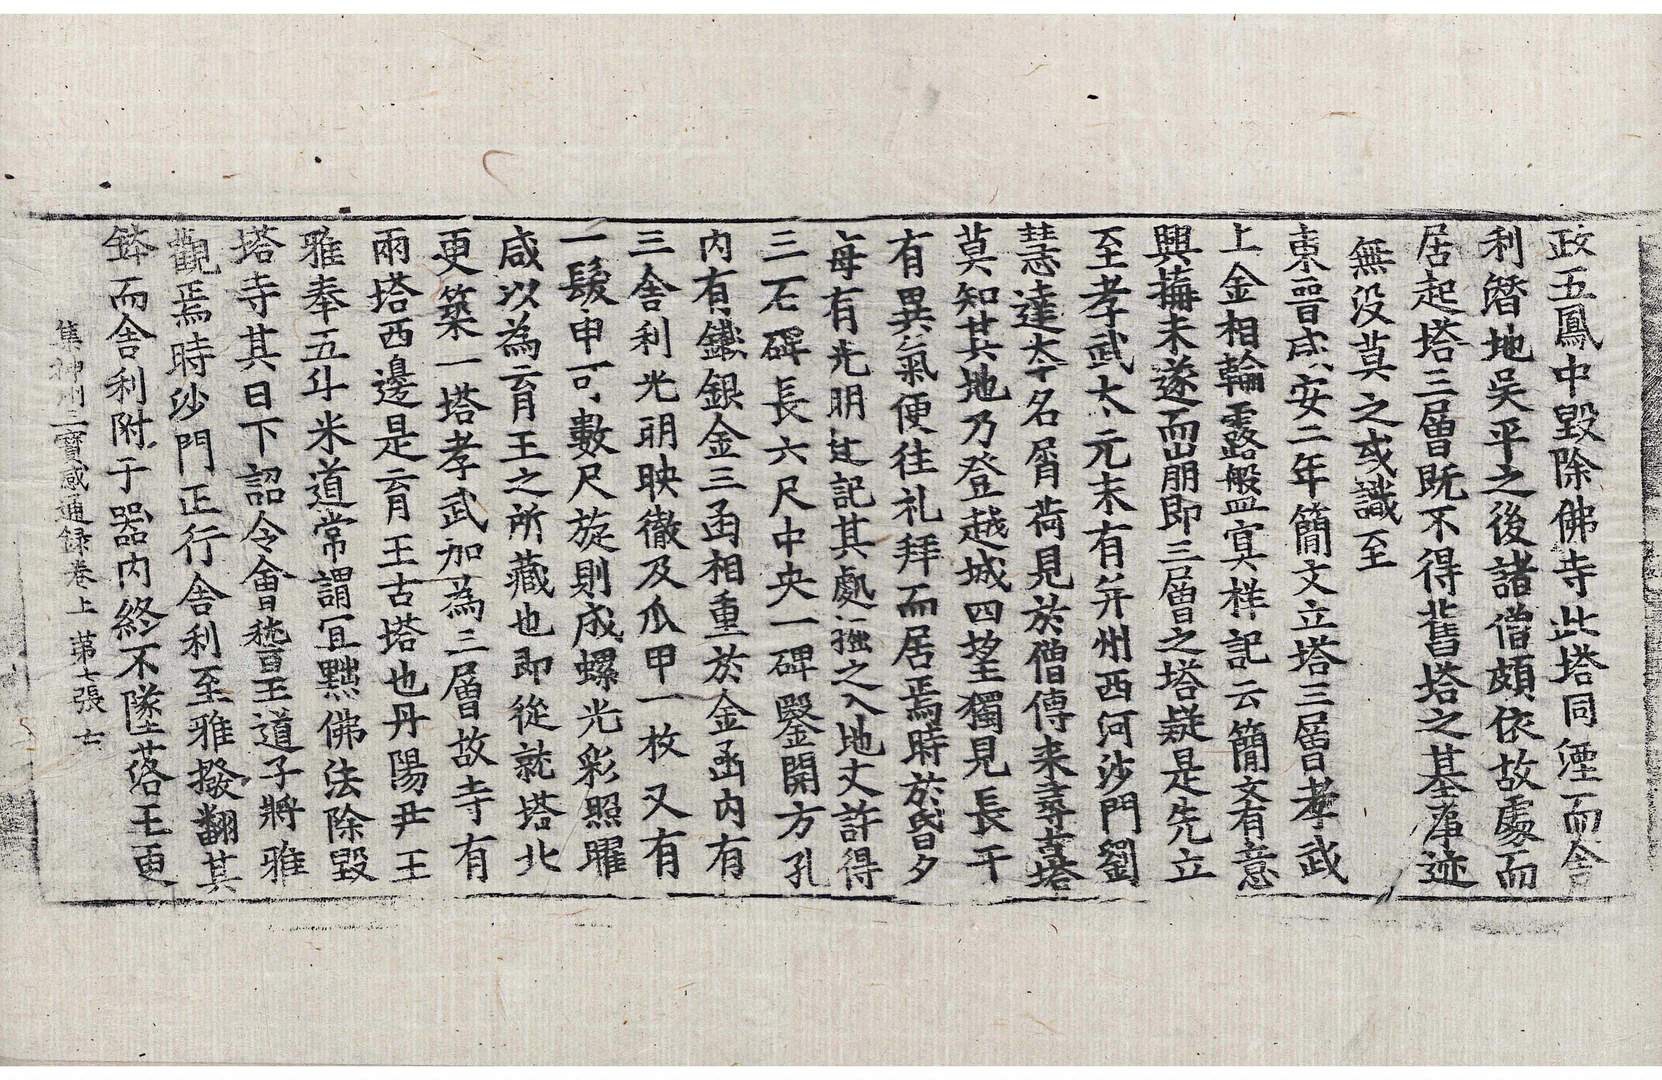 政五鳳中毀除佛寺此塔同湮而舍
利潛地吳平之後諸僧頗依故處而
居起塔三層既不得舊塔之基薄迹
無没莫之或識至
東晉咸安二年簡文立塔三層孝武
上金相輪露盤寘样記云簡文有意
興搆未遂而崩即三層之塔疑是先立
至孝武太元末有并州西河沙門劉
慧達本名屑荷見於僧傳来尋古塔
莫知其地乃登越城四望獨見長干
有異氣便往礼拜而居焉時於昏夕
每有光明迂記其處掘之入地丈許得
三石碑長六尺中央一碑鑿開方孔
内有鐵銀金三函相重於金函内有
三舍利光明映徹及爪甲一枚又有
一髮申可數尺旋則成螺光彩照曜
咸以為育王之所藏也即從就塔北
更築一塔孝武加為三層故寺有
兩塔西邊是育王古塔也丹陽尹王
雅奉五斗米道常謂宜黜佛法除毀
塔寺其日下詔令會稽王道子將雅
觀焉時沙門正行舍利至雅撥翻其
鉢而舍利附于器内終不墜落王更
集神州三寳感通録卷上 苐七張 士